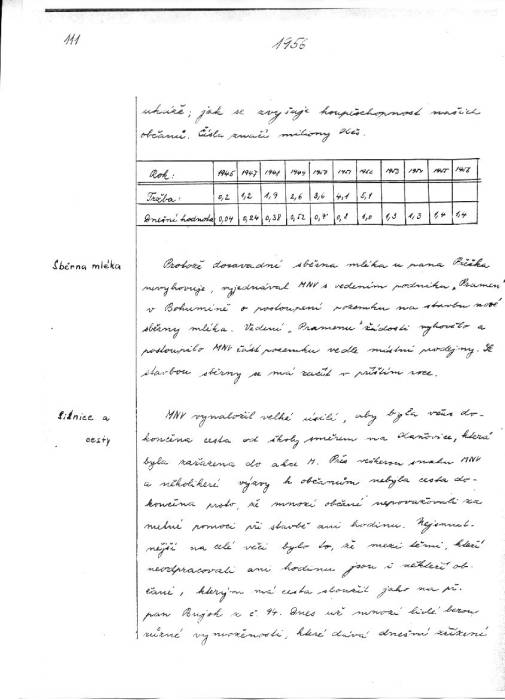 111
1956
ukáže, jak se zvyšuje koupěschopnost našich
občanů. Čísla značí miliony Kčs.
Rok: 1946 1947 1948 1949 1950 1951 1952 1953 1954 1955 1956
Tržba: 0,2 1,2 1,9 2,6 3,6 4,1 5,1
Dnešní hodnota: 0,04 0,24 0,38 0,52 0,8 1,0 1,3 1,3 1,4 1,4
Sběrna mléka
Protože dosavadní sběrna mléka u pana
nevyhovuje, vyjednával MNV s vedením podniku „Pramen“
v Bohumíně o postoupení pozemku na stavbu nové
sběrny mléka. Vedení „Pramenu“ žádosti vyhovělo a
postoupilo MNV část pozemku vedle místní prodejny. Se
stavbou sběrny se má začít v příštím roce.
Silnice a
cesty
MNV vynaložil velké úsilí, aby byla včas do-
končena cesta od školy směrem na, která
byla zařazena do akce M. Přes veškerou snahu MNV
a několikeré výzvy k občanům nebyla cesta do-
končena proto, že mnozí občané nepovažovali za
nutné pomoci při stavbě ani hodinu. Nejsmut-
nější na celé věci bylo to, že mezi těmi, kteří
neodpracovali ani hodinu jsou i někteří ob-
čané, kterým má cesta sloužit jako na př.
pan Bujok z č. 94. Dnes už mnozí lidé berou
různé vymoženosti, které dává dnešní zřízení